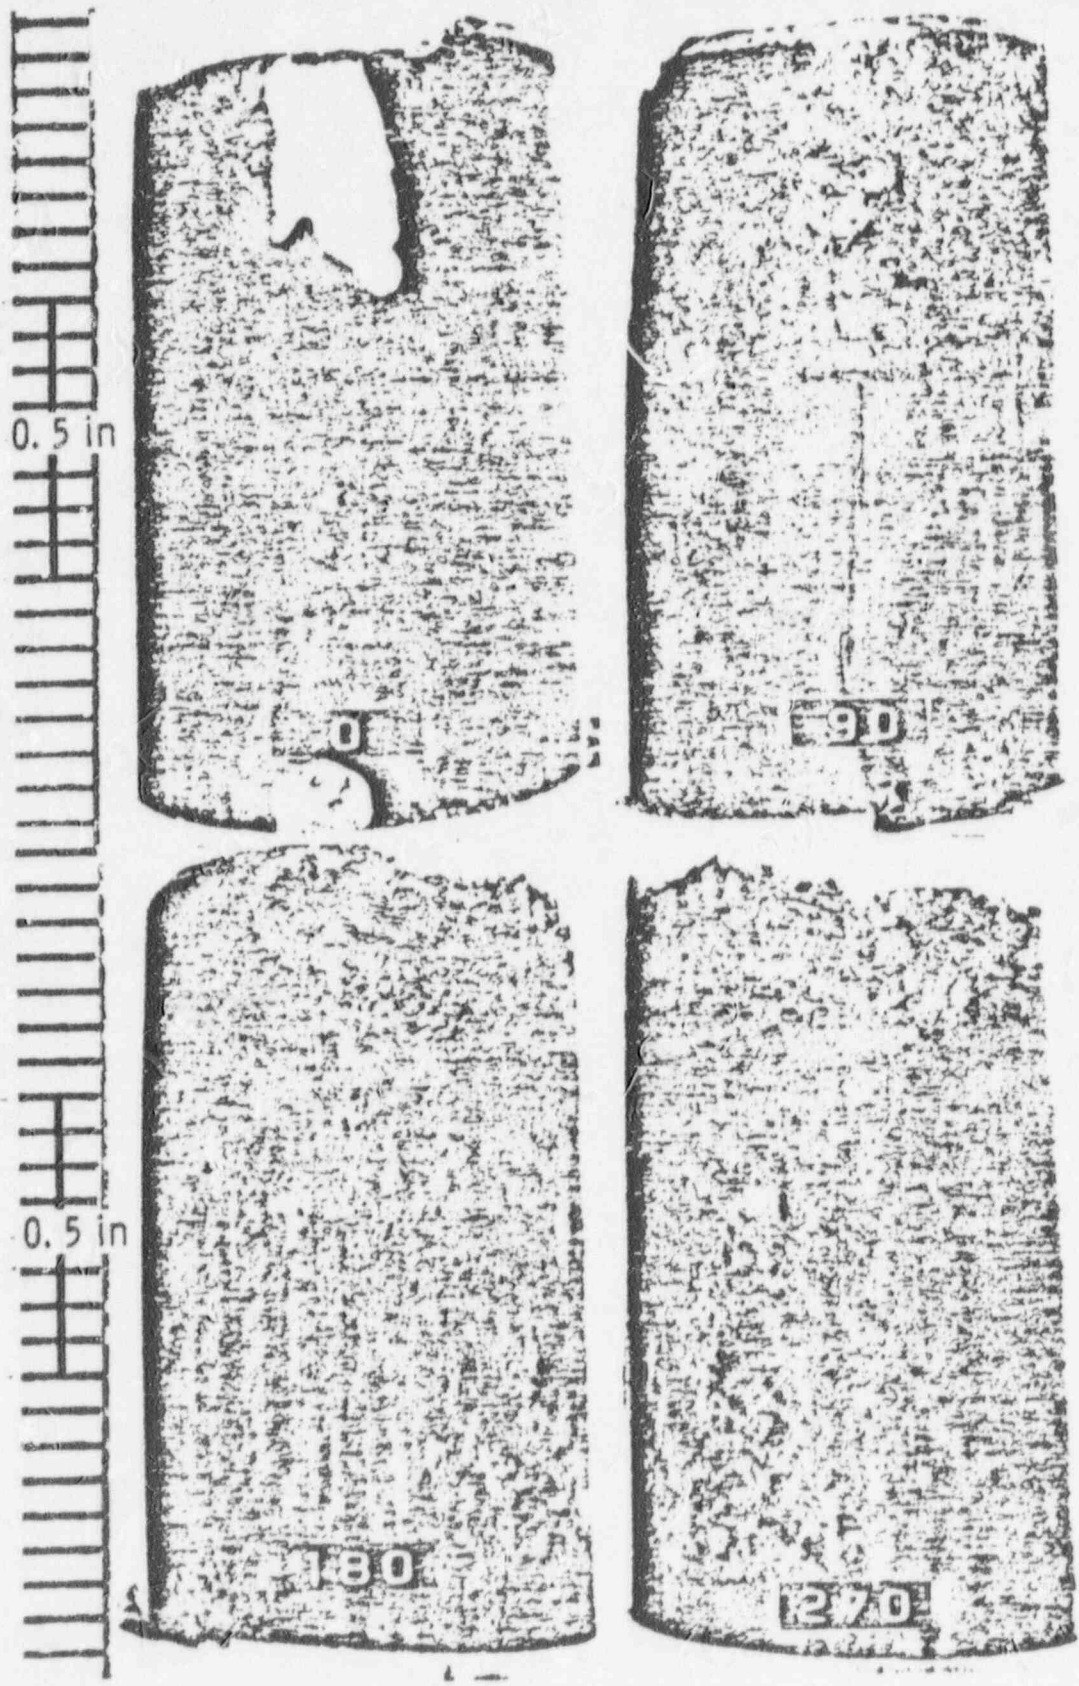 0.5 in
0
90
0.5 in
180
270